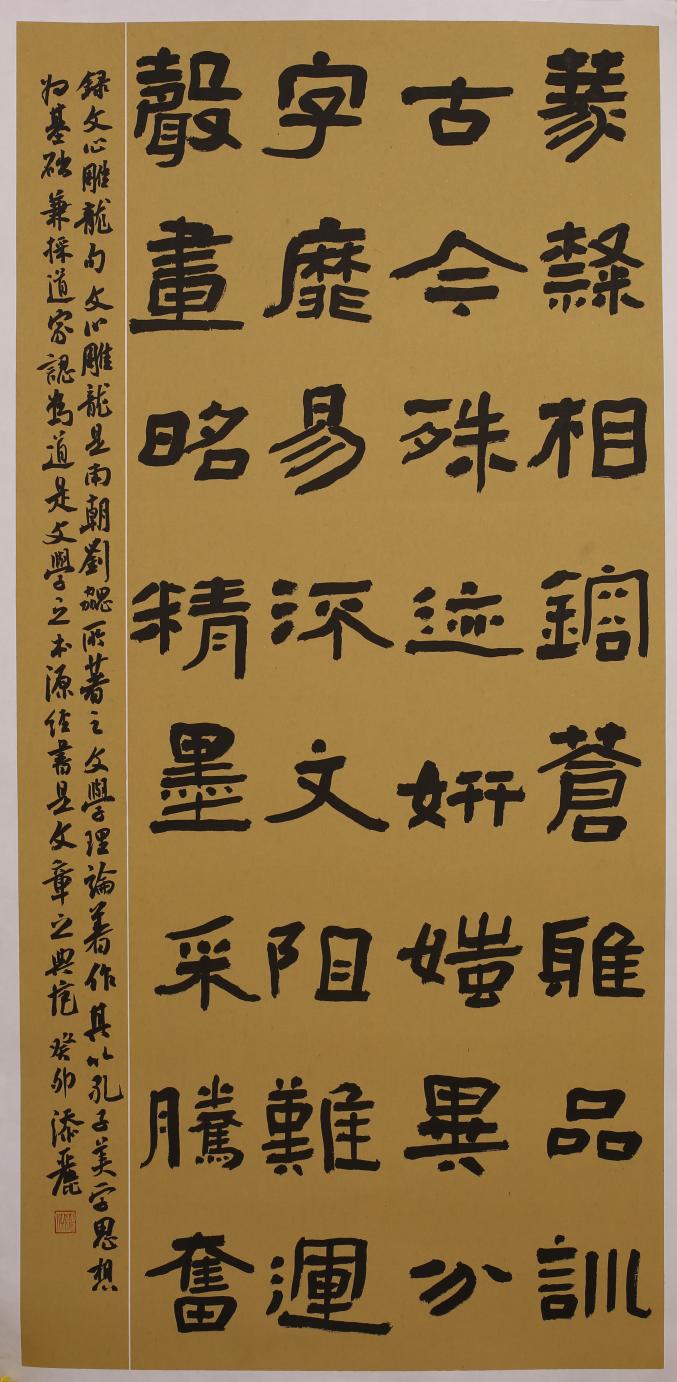 篆隸相鎔蒼雅品訓
古今殊迹妍媸異分
字靡易流文阻難運
聲畫昭精墨采騰奮
録文心雕龍句文心雕龍是南朝劉勰所著之文學理論著作其以孔子美学思想
为基础兼採道家認為道是文學之本源经書是文章之典范癸卯添麗